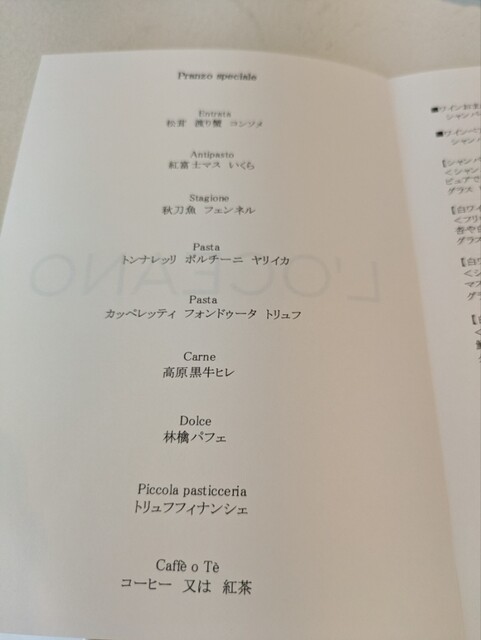 Pranzo speciale
Entrata
松茸 渡り蟹 コンソメ
Antipasto
紅富士マス いくら
Stagione
秋刀魚 フェンネル
Pasta
トンナレッリ ポルチーニ ヤリイカ
Pasta
カッペレッティ フォンドゥータ トリュフ
Carne
高原黒牛ヒレ
Dolce
林檎パフェ
Piccola pasticceria
トリュフフィナンシェ
Caffè o Tè
コーヒー 又は 紅茶
L'OCEANO